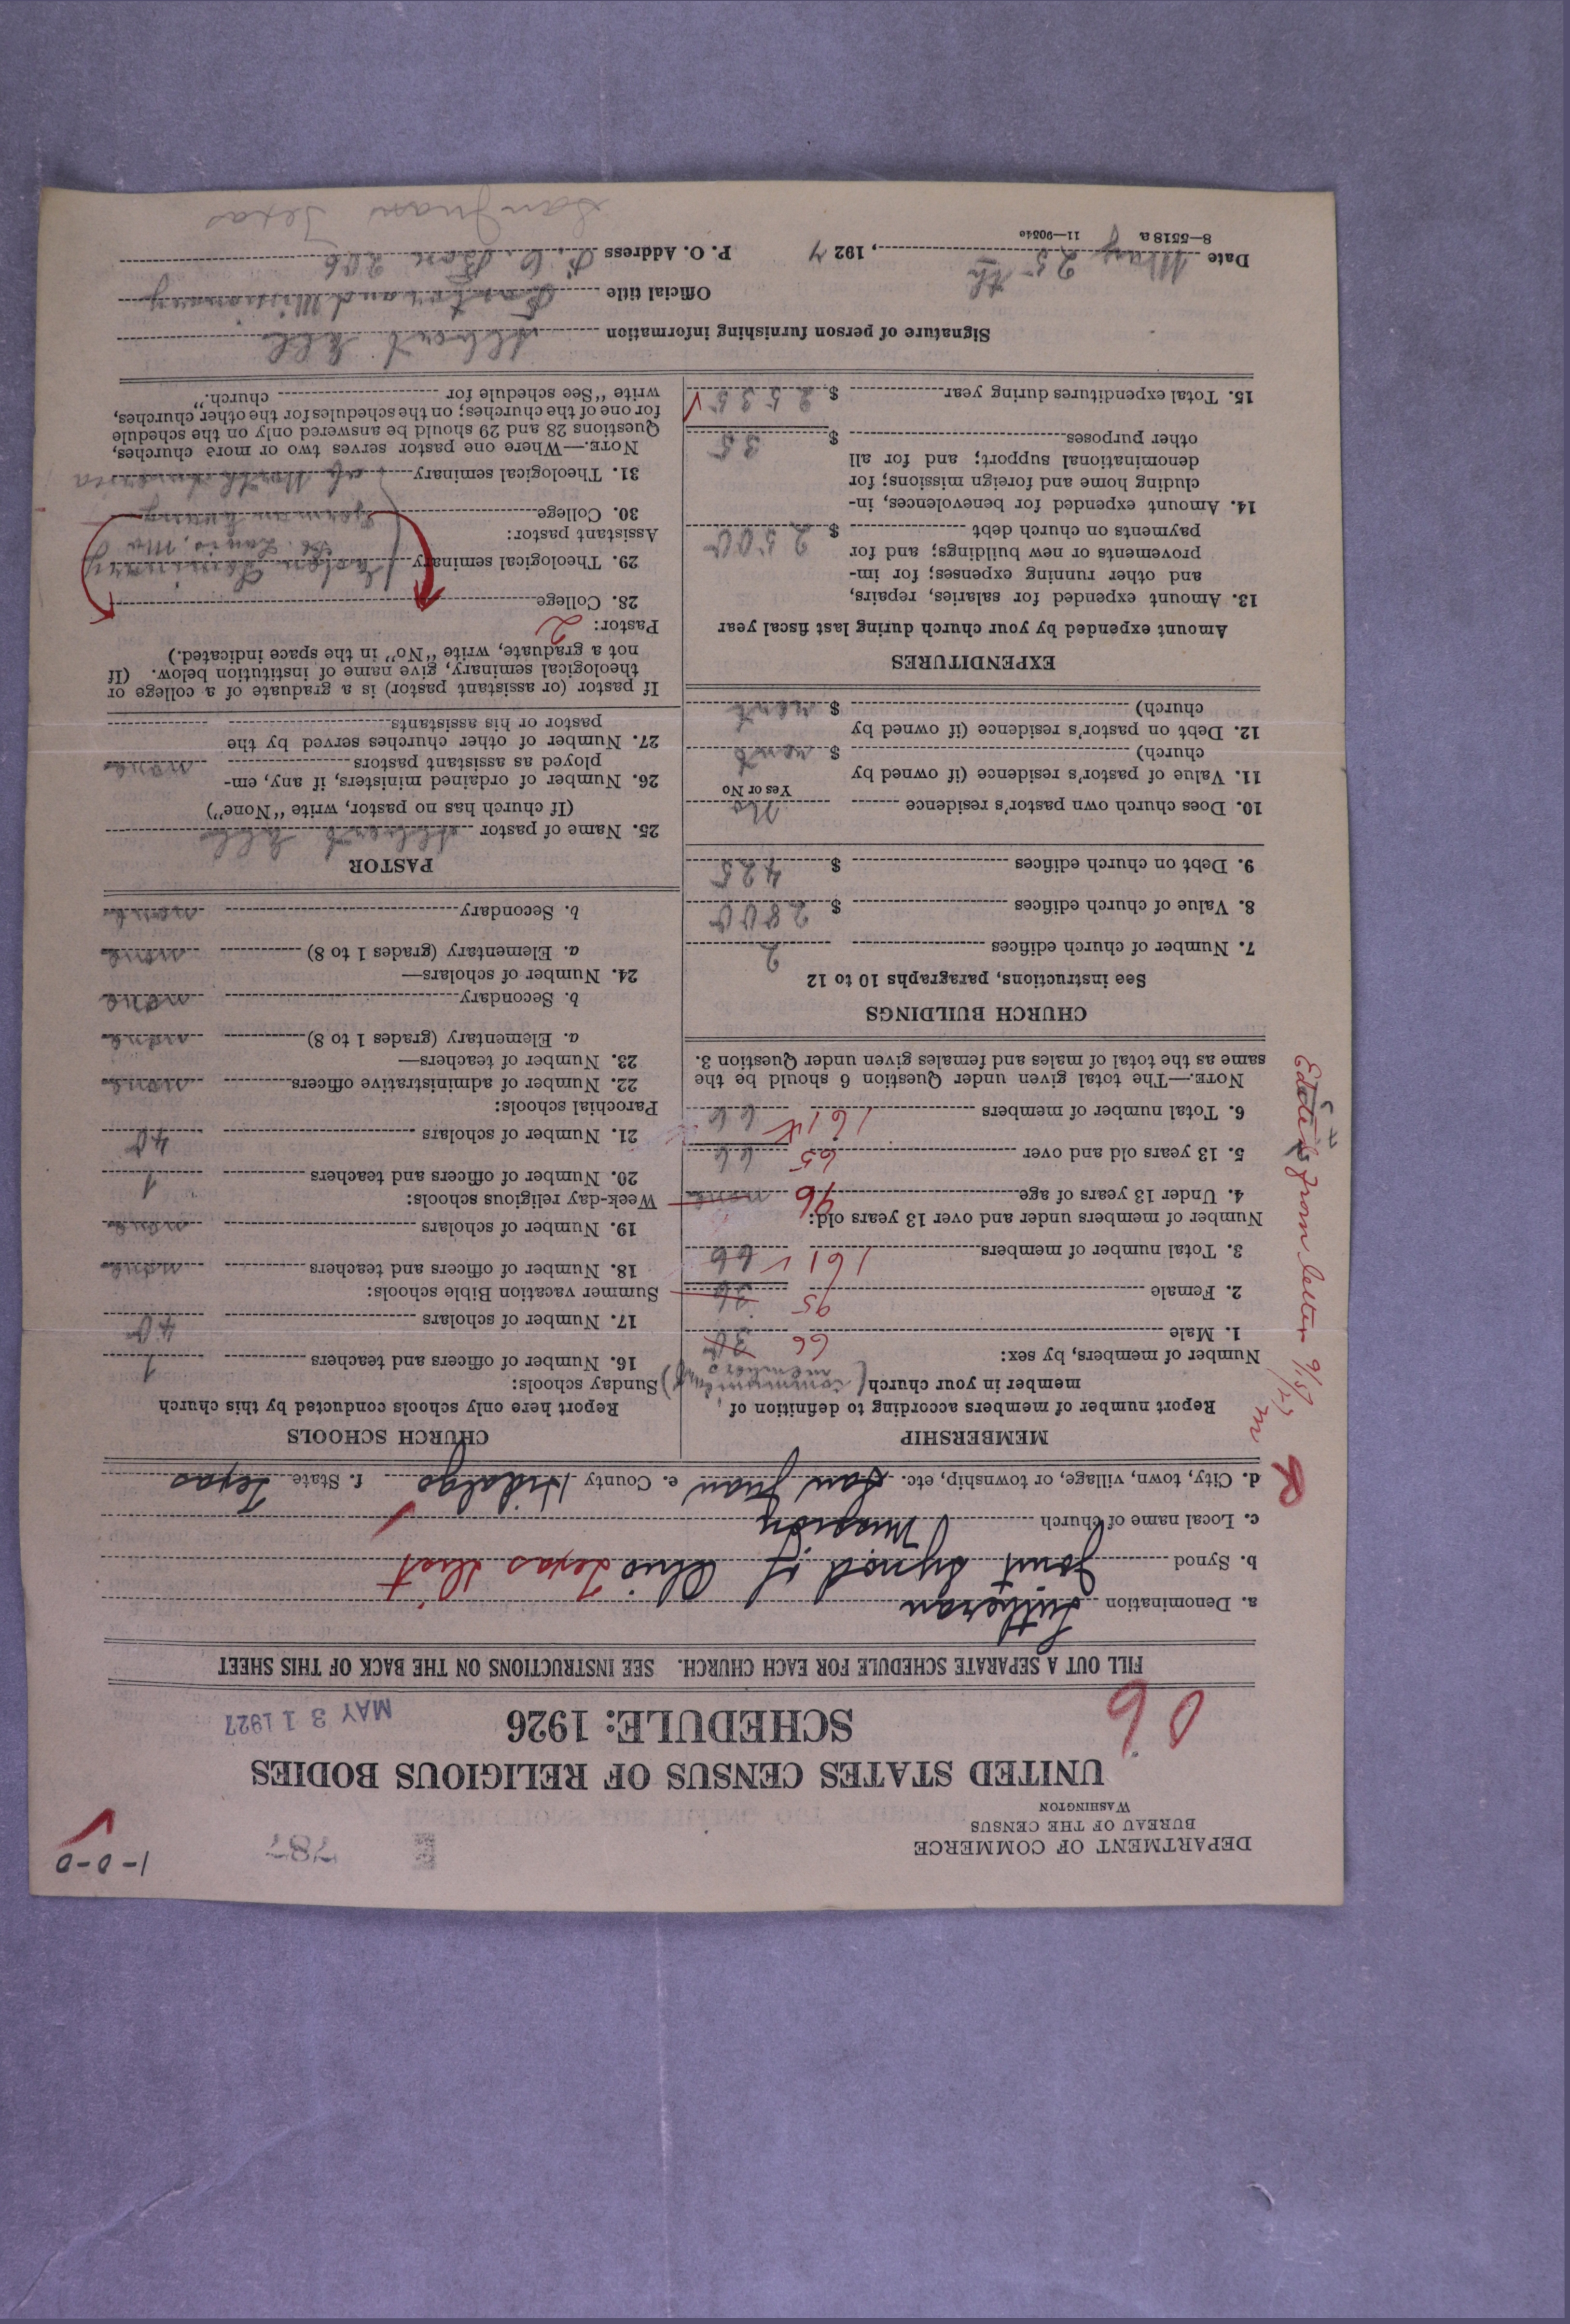 1-0-0
787
DEPARTMENT OF COMMERCE
BUREAU OF THE CENSUS
WASHINGTON
UNITED STATES CENSUS OF RELIGIOUS BODIES
06
SCHEDULE: 1926
MAY 31 1927
FILL OUT A SEPARATE SCHEDULE FOR EACH CHURCH. SEE INSTRUCTIONS ON THE BACK OF THIS SHEET
a. Denomination Lutheran
b. Synod Joint Synod of Ohio Texas Dist
c. Local name of church Mission
d. City, town, village, or township, etc. San Juan e. County Hidalgo f. State Texas
R
Edited from letter
MEMBERSHIP
Report number of members according to definition of
member in your church (communing members only)
Number of members, by sex:
1. Male 66 30
2. Female 95 36
3. Total number of members 161 66
Number of members under and over 13 years old:
4. Under 13 years of age 96 none
5. 13 years old and over 65 66
6. Total number of members 161 66
NOTE.—The total given under Question 6 should be the
same as the total of males and females given under Question 3.
CHURCH BUILDINGS
See instructions, paragraphs 10 to 12
7. Number of church edifices 2
8. Value of church edifices $ 2800
9. Debt on church edifices $ 425
10. Does church own pastor's residence No
Yes or No
11. Value of pastor's residence (if owned by
church) $ rent
12. Debt on pastor's residence (if owned by
church) $ rent
EXPENDITURES
Amount expended by your church during last fiscal year
13. Amount expended for salaries, repairs,
and other running expenses; for im-
provements or new buildings; and for
payments on church debt $ 2500
14. Amount expended for benevolences, in-
cluding home and foreign missions; for
denominational support; and for all
other purposes $ 35
15. Total expenditures during year $ 2535
CHURCH SCHOOLS
Report here only schools conducted by this church
Sunday schools:
16. Number of officers and teachers 1
17. Number of scholars 40
Summer vacation Bible schools:
18. Number of officers and teachers none
19. Number of scholars none
Week-day religious schools:
20. Number of officers and teachers 1
21. Number of scholars 40
Parochial schools:
22. Number of administrative officers none
23. Number of teachers—
a. Elementary (grades 1 to 8) none
b. Secondary none
24. Number of scholars—
a. Elementary (grades 1 to 8) none
b. Secondary none
PASTOR
25. Name of pastor Albert
(If church has no pastor, write "None")
26. Number of ordained ministers, if any, em-
ployed as assistant pastors none
27. Number of other churches served by the
pastor or his assistants
If pastor (or assistant pastor) is a graduate of a college or
theological seminary, give name of institution below. (If
not a graduate, write "No" in the space indicated.)
Pastor: 2
28. College
29. Theological seminary Eden Seminary
St. Louis, Mo
Assistant pastor:
30. College
31. Theological seminary of North America
NOTE.—Where one pastor serves two or more churches,
Questions 28 and 29 should be answered only on the schedule
for one of the churches; on the schedules for the other churches,
write "See schedule for church."
Signature of person furnishing information Albert
Official title Pastor and Missionary
Date May 25th, 1927 P. O. Address P.O. Box 206
8—5518 a 11—9054e
San Juan Texas